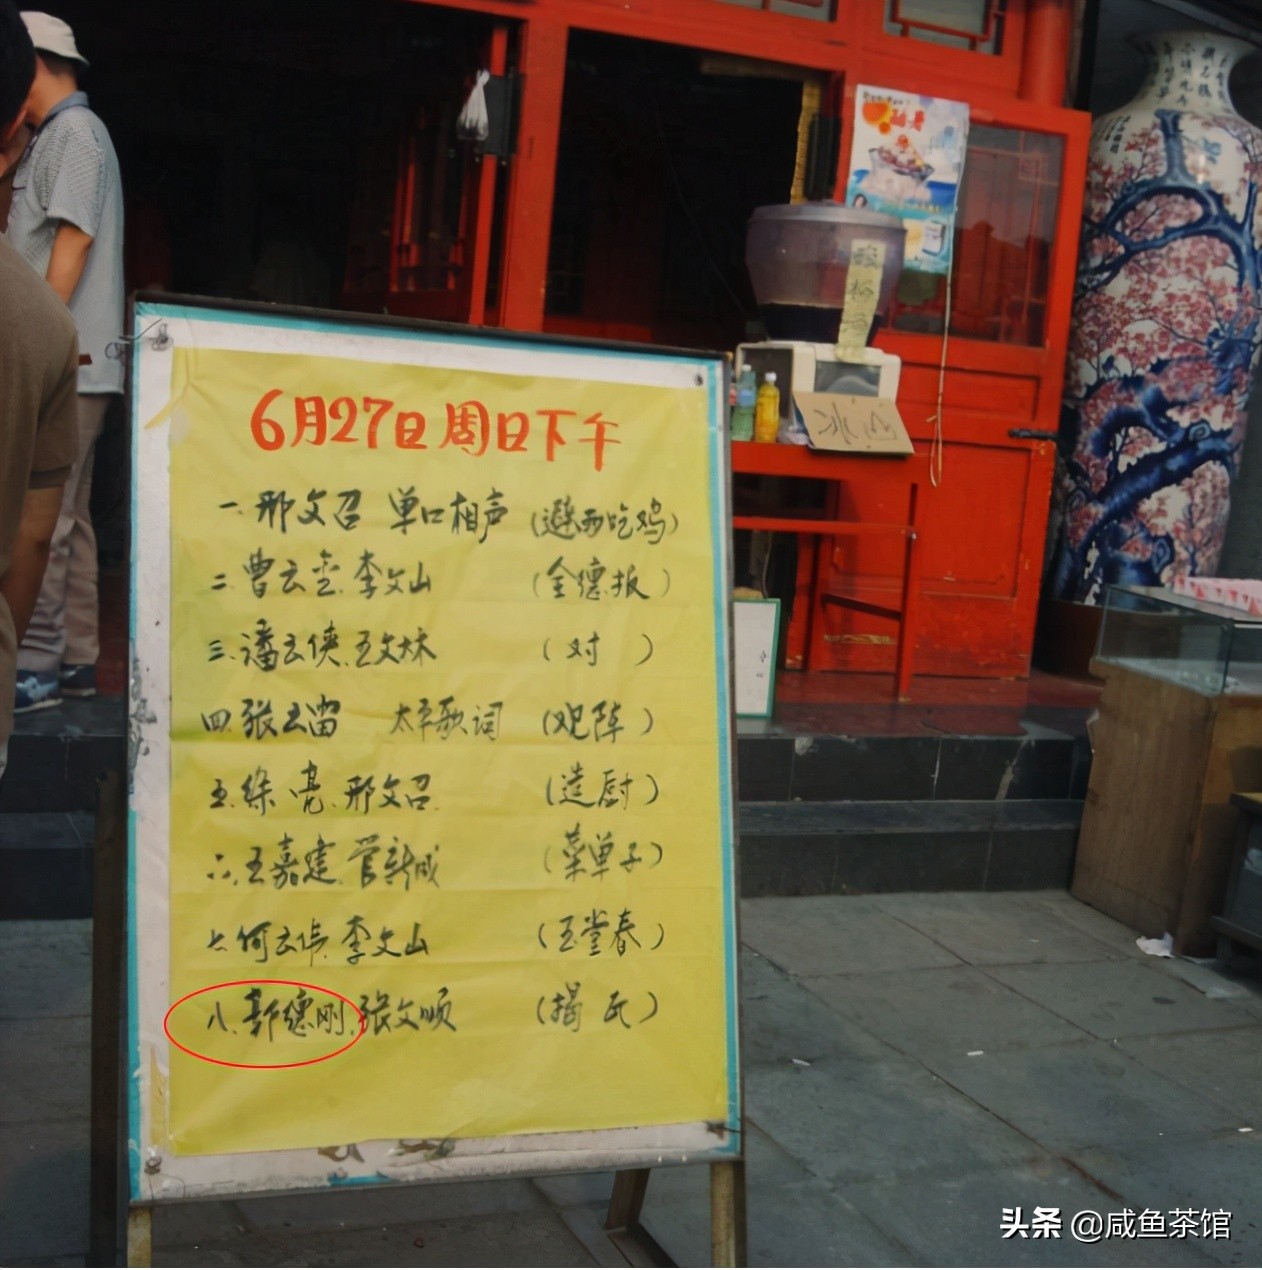 6月27日周日下午
一.邢文召 单口相声 (避西吃鸡)
二.曹云金.李文山 (全德报)
三.潘云侠.王文林 (对 )
四.张云雷 太平歌词 (观阵)
五.徐亮.邢文召. (造厨)
六.王嘉建.管新成 (菜单子)
七.何云伟.李文山 (玉堂春)
八.郭德刚.张文顺 (揭瓦)
酸梅汤
冰
头条 @咸鱼茶馆